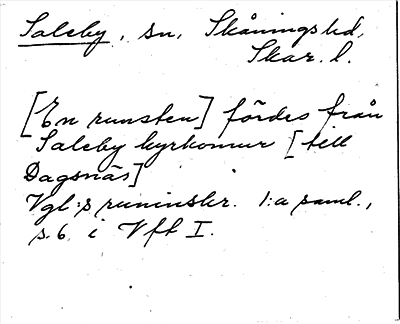 Saleby, sn, Skånings hd,
Skar. l.
[En runsten] fördes från
Saleby kyrkomur [till
Dagsnäs]
Vgl:s runinskr. 1:a saml.,
s. 6 i Vft I.